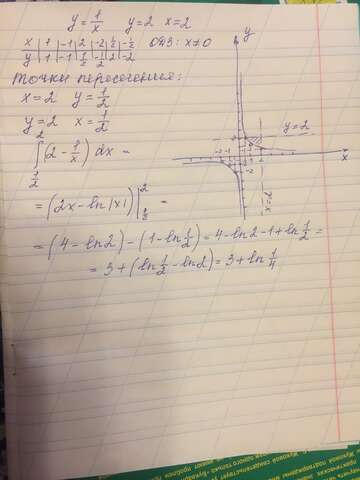 y = 1/x   y = 2   x = 2
x | 1 | -1 | 2 | -2 | 1/2 | -1/2   ОДЗ: x≠0
y | 1 | -1 | 1/2 | -1/2 | 2 | -2
Точки пересечения:
x = 2   y = 1/2
y = 2   x = 1/2
∫_{1/2}^{2} (2 - 1/x) dx =
= (2x - ln|x|) |_{1/2}^{2} =
= (4 - ln2) - (1 - ln 1/2) = 4 - ln2 - 1 + ln 1/2 =
= 3 + (ln 1/2 - ln2) = 3 + ln 1/4
y
y = 2
x
x = 2